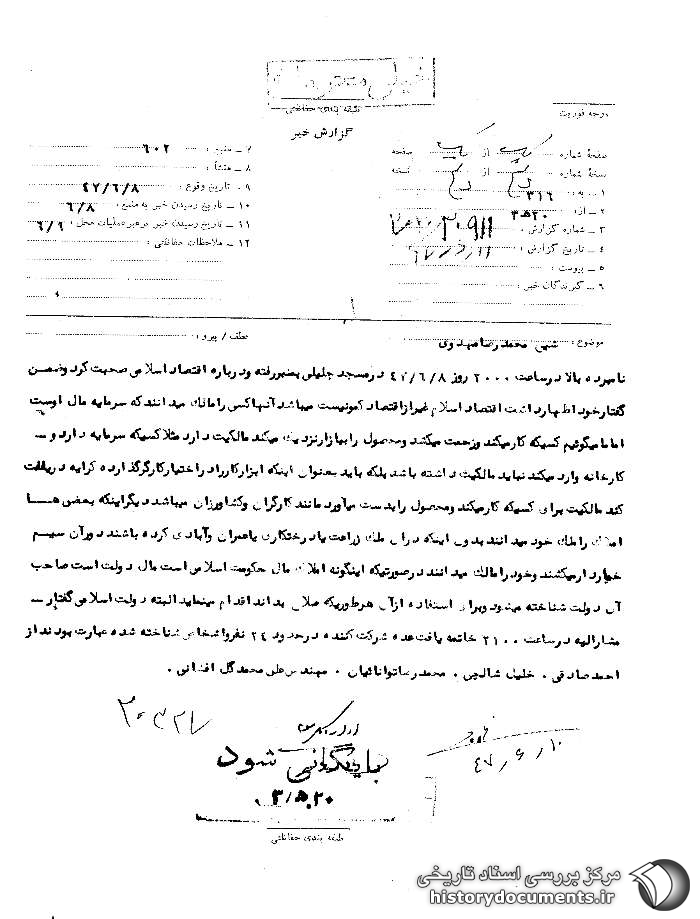 خیلی محرمانه
طبقه بندی حفاظتی
درجه فوریت
گزارش خبر
صفحهٔ شماره یک از یک صفحه
نسخهٔ شماره از نسخه
۱ ـ به : ۳۱۶
۲ ـ از : ۲۰ ه ۳
۳ ـ شماره گزارش :
۴ ـ تاریخ گزارش :
۵ ـ پیوست :
۶ ـ گیرندگان خبر :
۷ ـ منبع : ۶۰۲
۸ ـ منشأ :
۹ ـ تاریخ وقوع : ۴۷/۶/۸
۱۰ ـ تاریخ رسیدن خبر به منبع : ۶/۸
۱۱ ـ تاریخ رسیدن خبر به رهبر عملیات محل : ۶/۹
۱۲ ـ ملاحظات حفاظتی :
موضوع : شیخ محمدرضا مهدوی
عطف / پیرو :
نامبرده بالا در ساعت ۲۰۰۰ روز ۴۷/۶/۸ در مسجد جلیلی بمنبر رفته و درباره اقتصاد اسلامی صحبت کرد و ضمن
گفتار خود اظهار داشت اقتصاد اسلام غیر از اقتصاد کمونیست میباشد آنها کسی را مالک میدانند که سرمایه مال اوست
اما ما میگوئیم کسیکه کار میکند و زحمت میکشد و محصول را ببازار نزدیک میکند مالکیت دارد مثلا کسیکه سرمایه دارد و ـ
کارخانه وارد میکند نباید مالکیت داشته باشد بلکه باید بعنوان اینکه ابزار کار را در اختیار کارگر گذارده کرایه دریافت
کند مالکیت برای کسیکه کار میکند و محصول را بدست میآورد مانند کارگران و کشاورزان میباشد دیگر اینکه بعضی هـا
املاک را ملک خود میدانند بدون اینکه در آن ملک زراعت یا درختکاری یا عمران و آبادی کرده باشند دور آن سیم
خواردار میکشند و خود را مالک میدانند در صورتیکه اینگونه املاک مال حکومت اسلامی است مال دولت است صاحب
آن دولت شناخته میشود و برای استفاده از آن هرطوریکه صلاح بداند اقدام مینماید البته دولت اسلامی گفتار ـ
مشارالیه در ساعت ۲۱۰۰ خاتمه یافت عده شرکت کننده در حدود ۲۴ نفر و اشخاص شناخته شده عبارت بودند از
احمد صادقی ۰ خلیل شالچی ۰ محمدرضا توانائیان ۰ مهندس علی محمد گل افشانی ۰
بایگانی شود
۲۰ ه ۳
۴۷/۶/۱۰
طبقه بندی حفاظتی
مرکز بررسی اسناد تاریخی
historydocuments.ir